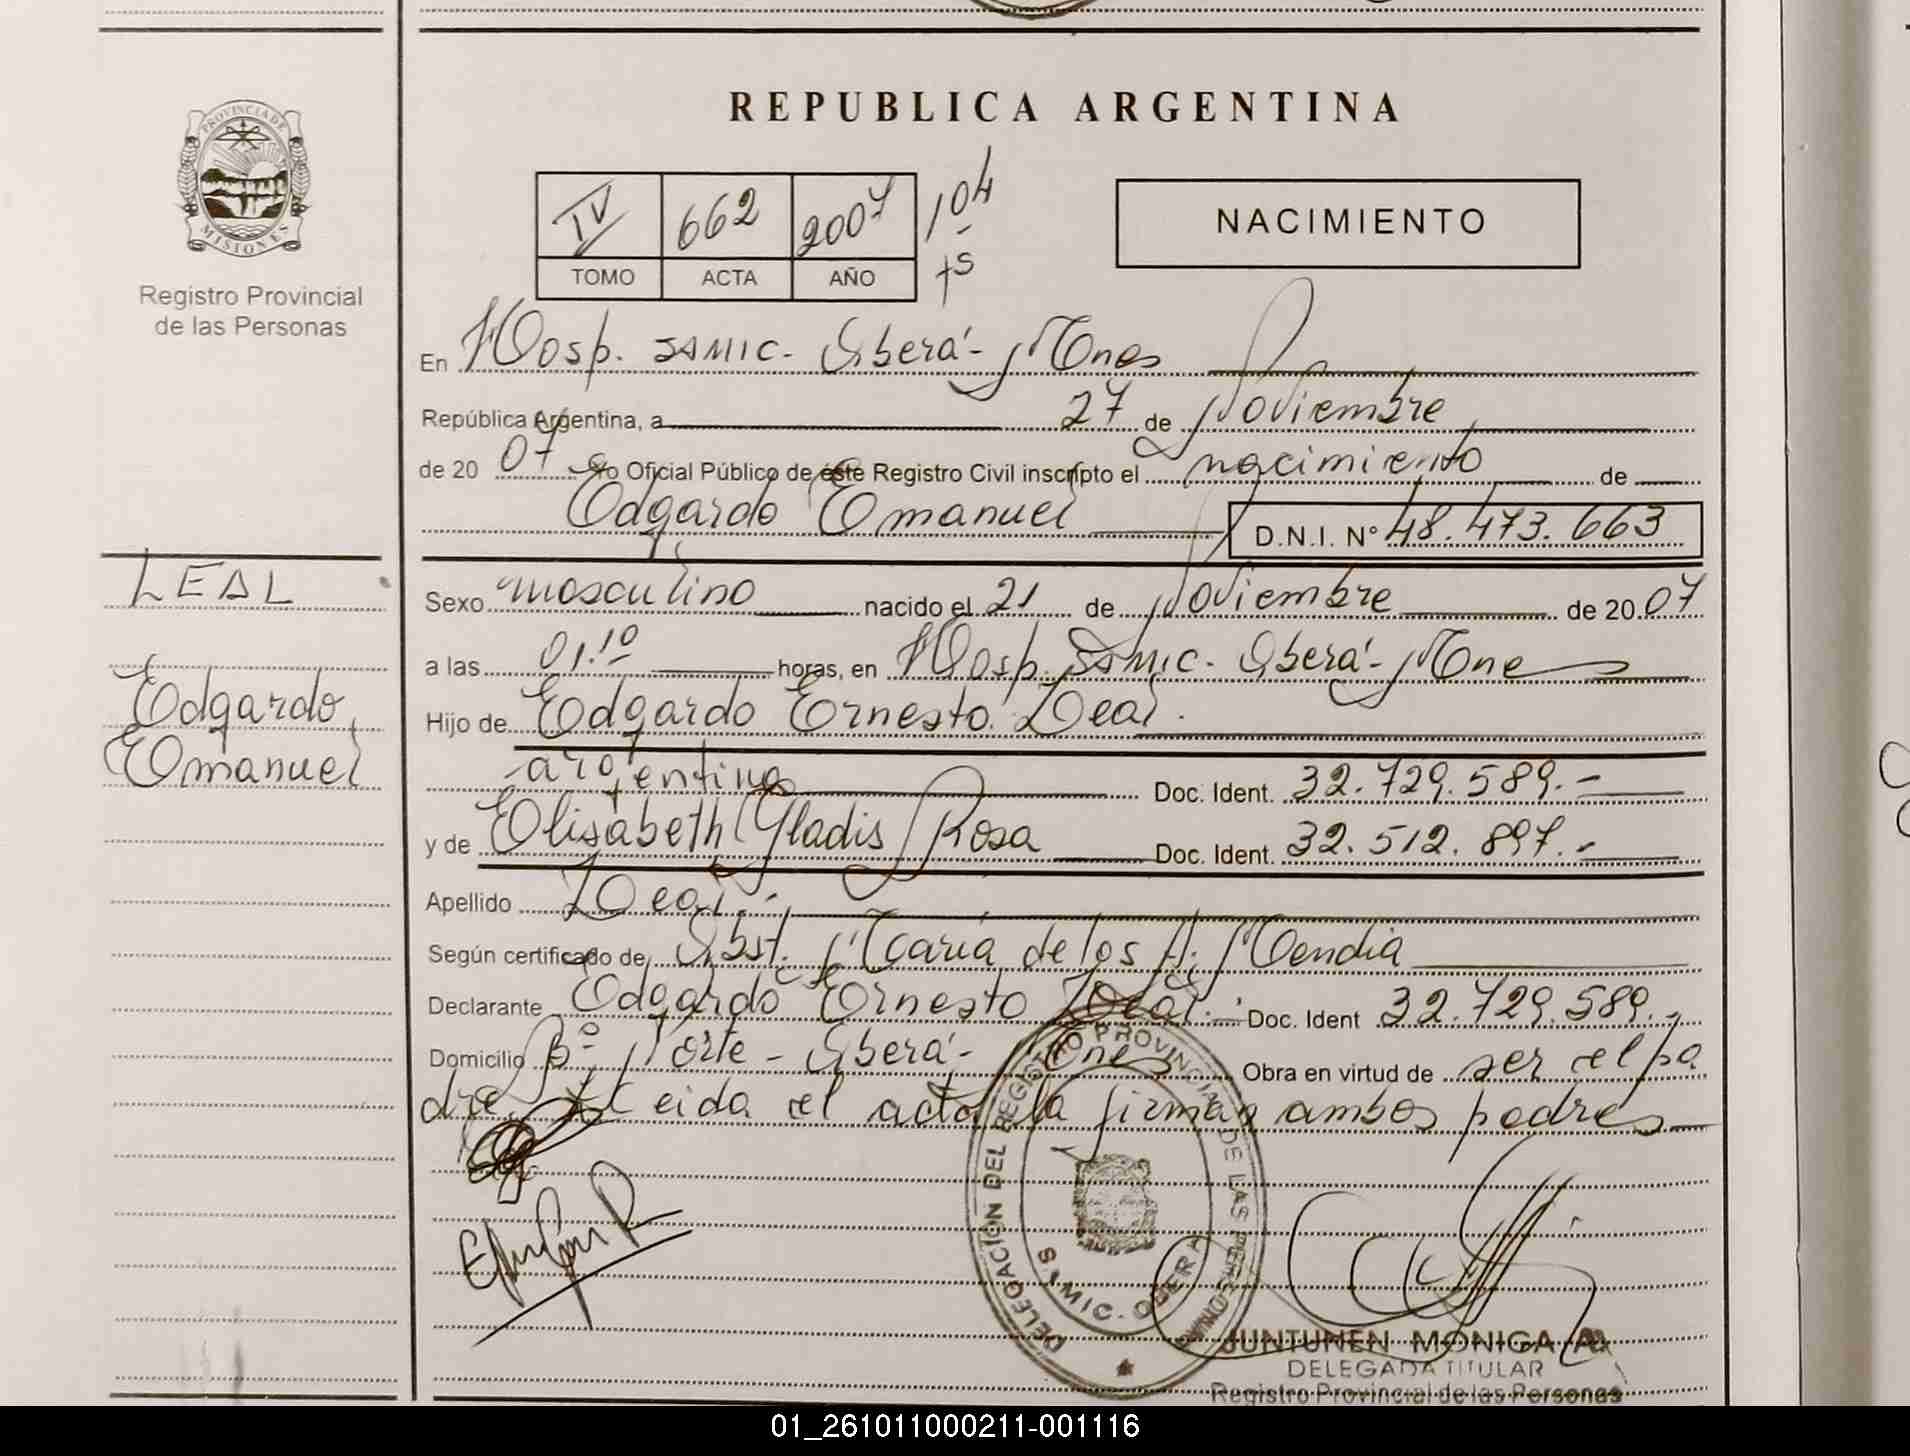 PROVINCIA DE
MISIONES
Registro Provincial
de las Personas
REPUBLICA ARGENTINA
IV 662 2007 104
TOMO ACTA AÑO fs
NACIMIENTO
En Hosp. SAMIC - Oberá - Mnes
República Argentina, a 27 de Noviembre
de 20 07 Yo Oficial Público de éste Registro Civil inscripto el nacimiento de
Edgardo Emanuel D.N.I. Nº 48.473.663
LEAL
Edgardo
Emanuel
Sexo masculino nacido el 21 de Noviembre de 20 07
a las 01.10 horas, en Hosp. SAMIC - Oberá - Mnes
Hijo de Edgardo Ernesto Leal.
-argentino Doc. Ident. 32.729.589.-
y de Elisabeth Gladis Rosa Doc. Ident. 32.512.897.-
Apellido Leal.-
Según certificado de Obst. María de los A. Mendia
Declarante Edgardo Ernesto Leal.- Doc. Ident 32.729.589.-
Domicilio Bº Norte - Oberá - Mnes Obra en virtud de ser el pa
dre. Leida el acta la firman ambos padres
DELEGACION DEL REGISTRO PROVINCIAL DE LAS PERSONAS
SAMIC. OBERA
JUNTUNEN MONICA A.
DELEGADA TITULAR
Registro Provincial de las Personas
01_261011000211-001116